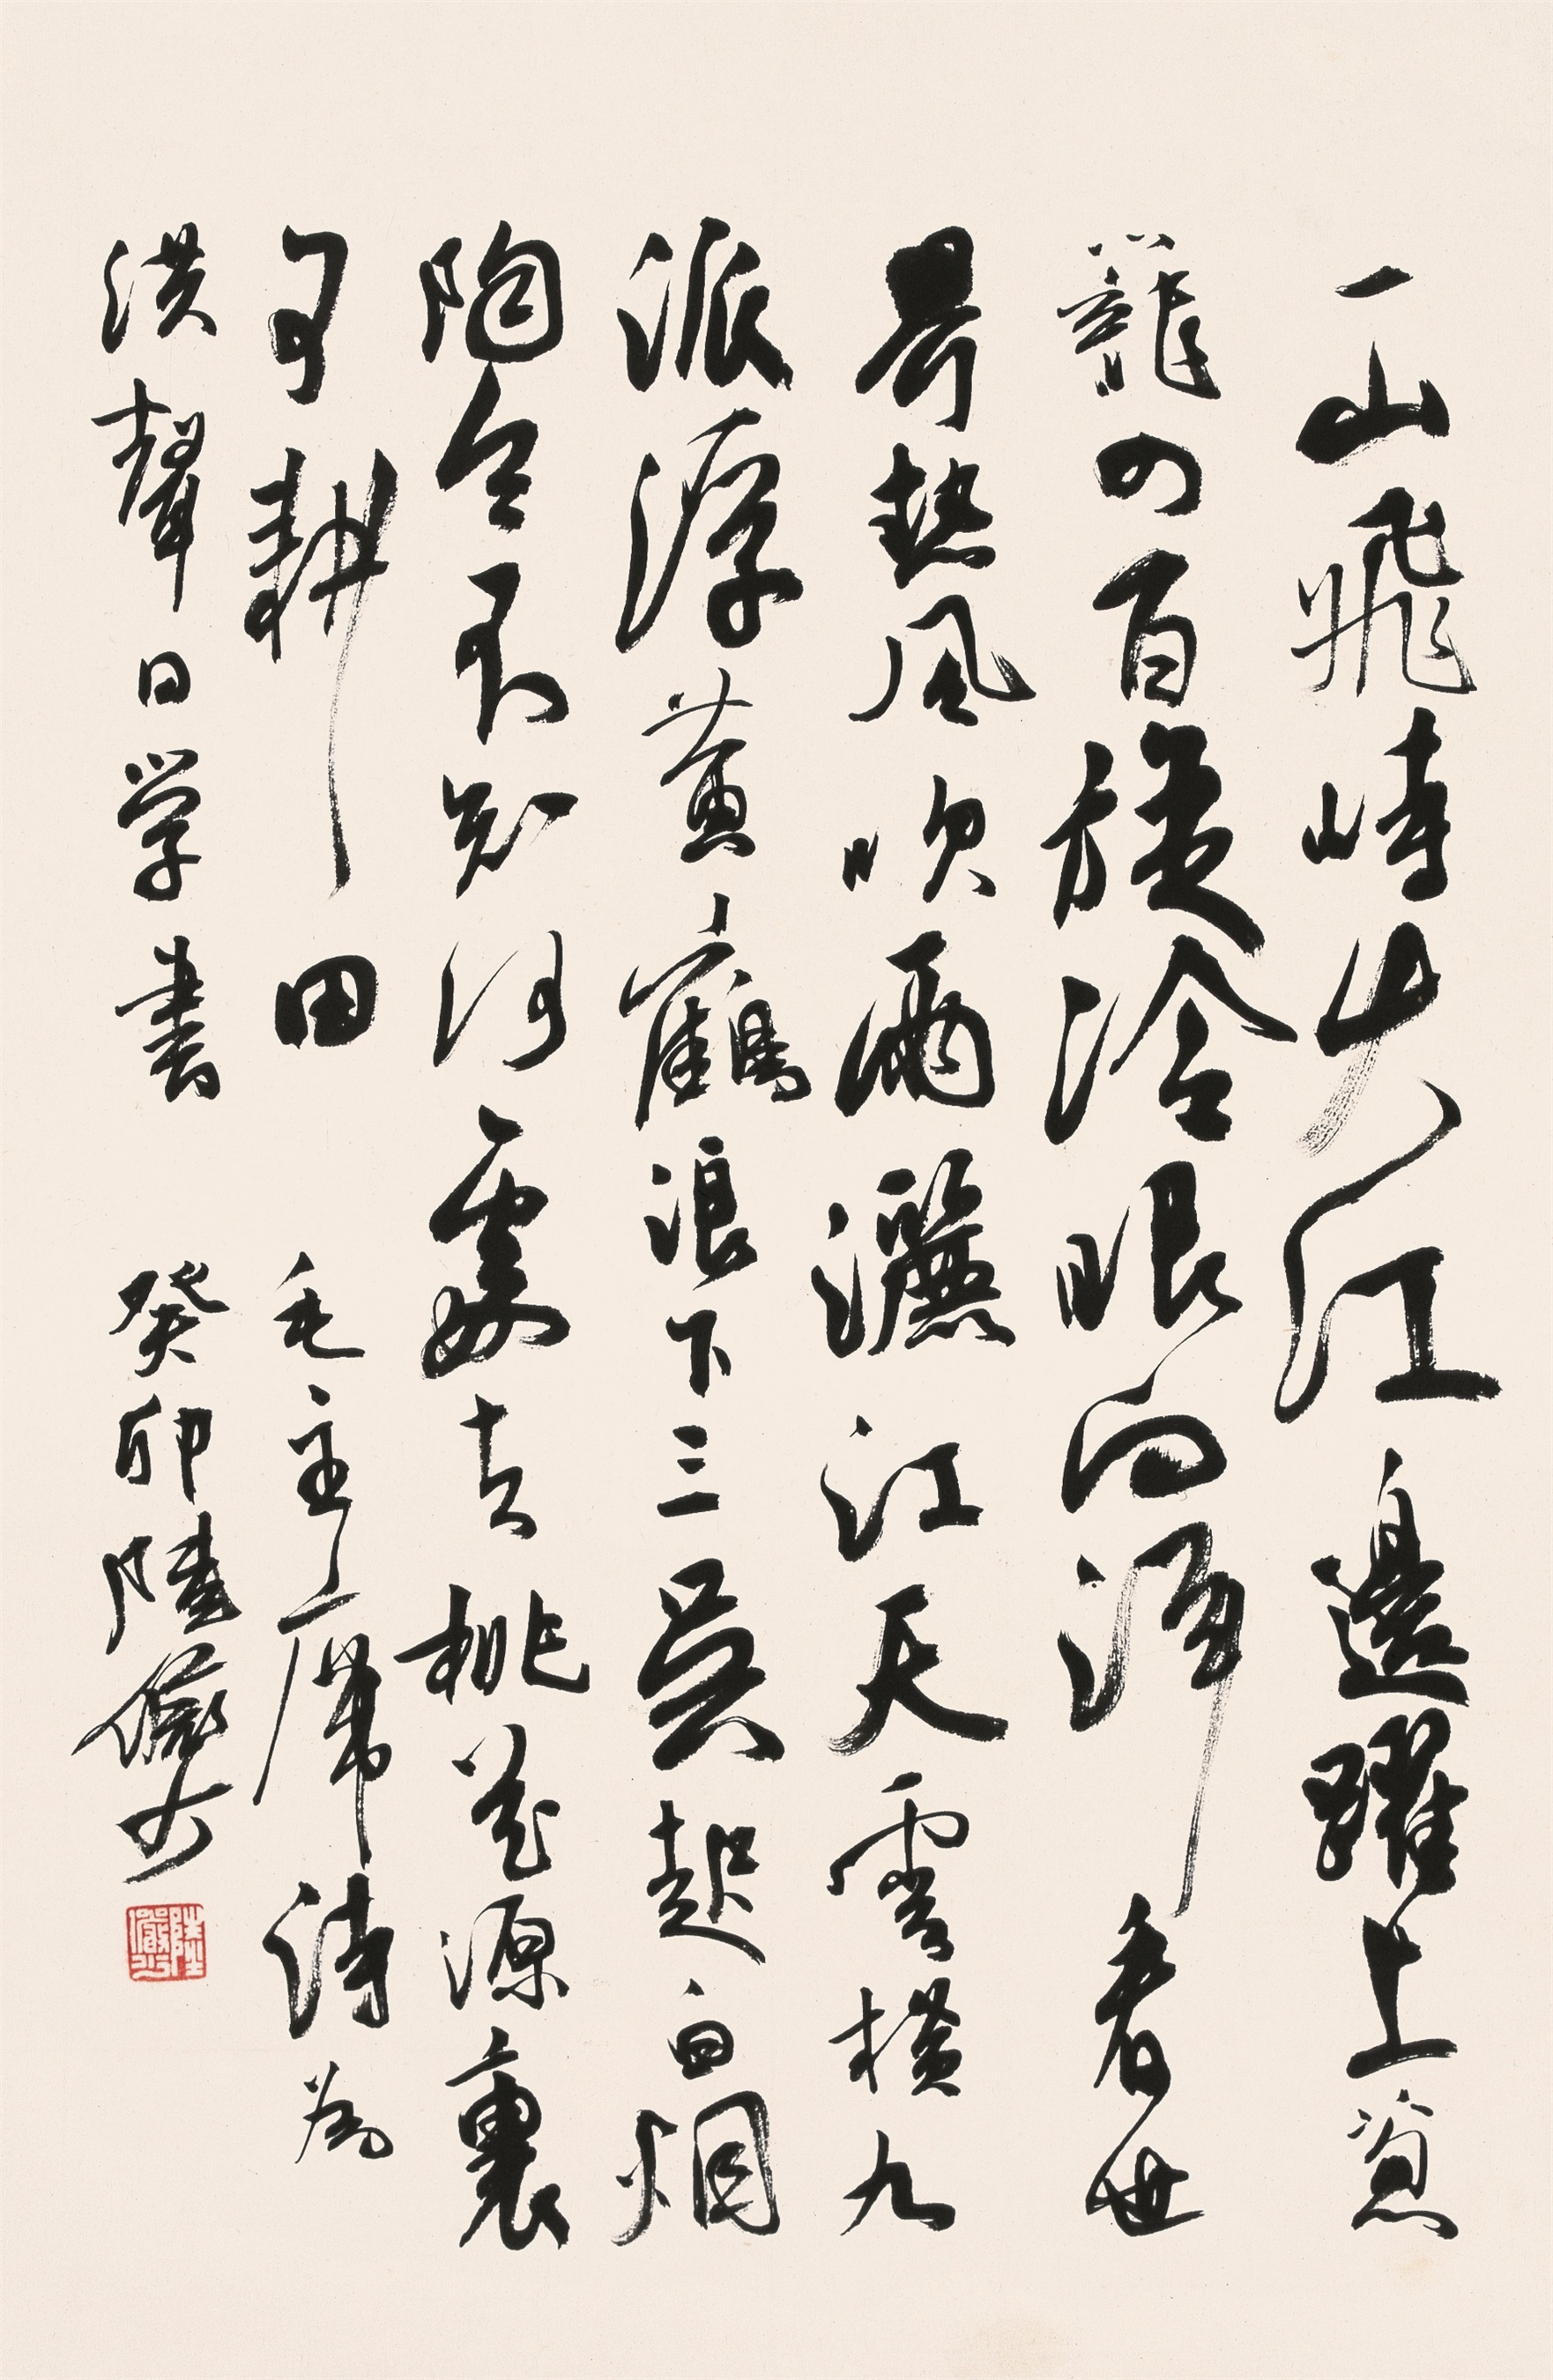 一山飛峙大江邊躍上葱
蘢四百旋冷眼向洋看世
界熱風吹雨灑江天雲橫九
派浮黃鶴浪下三吳起白烟
陶令不知何處去桃花源裏
可耕田 毛主席詩為
洪聲同学書 癸卯陸儼少
陸儼少